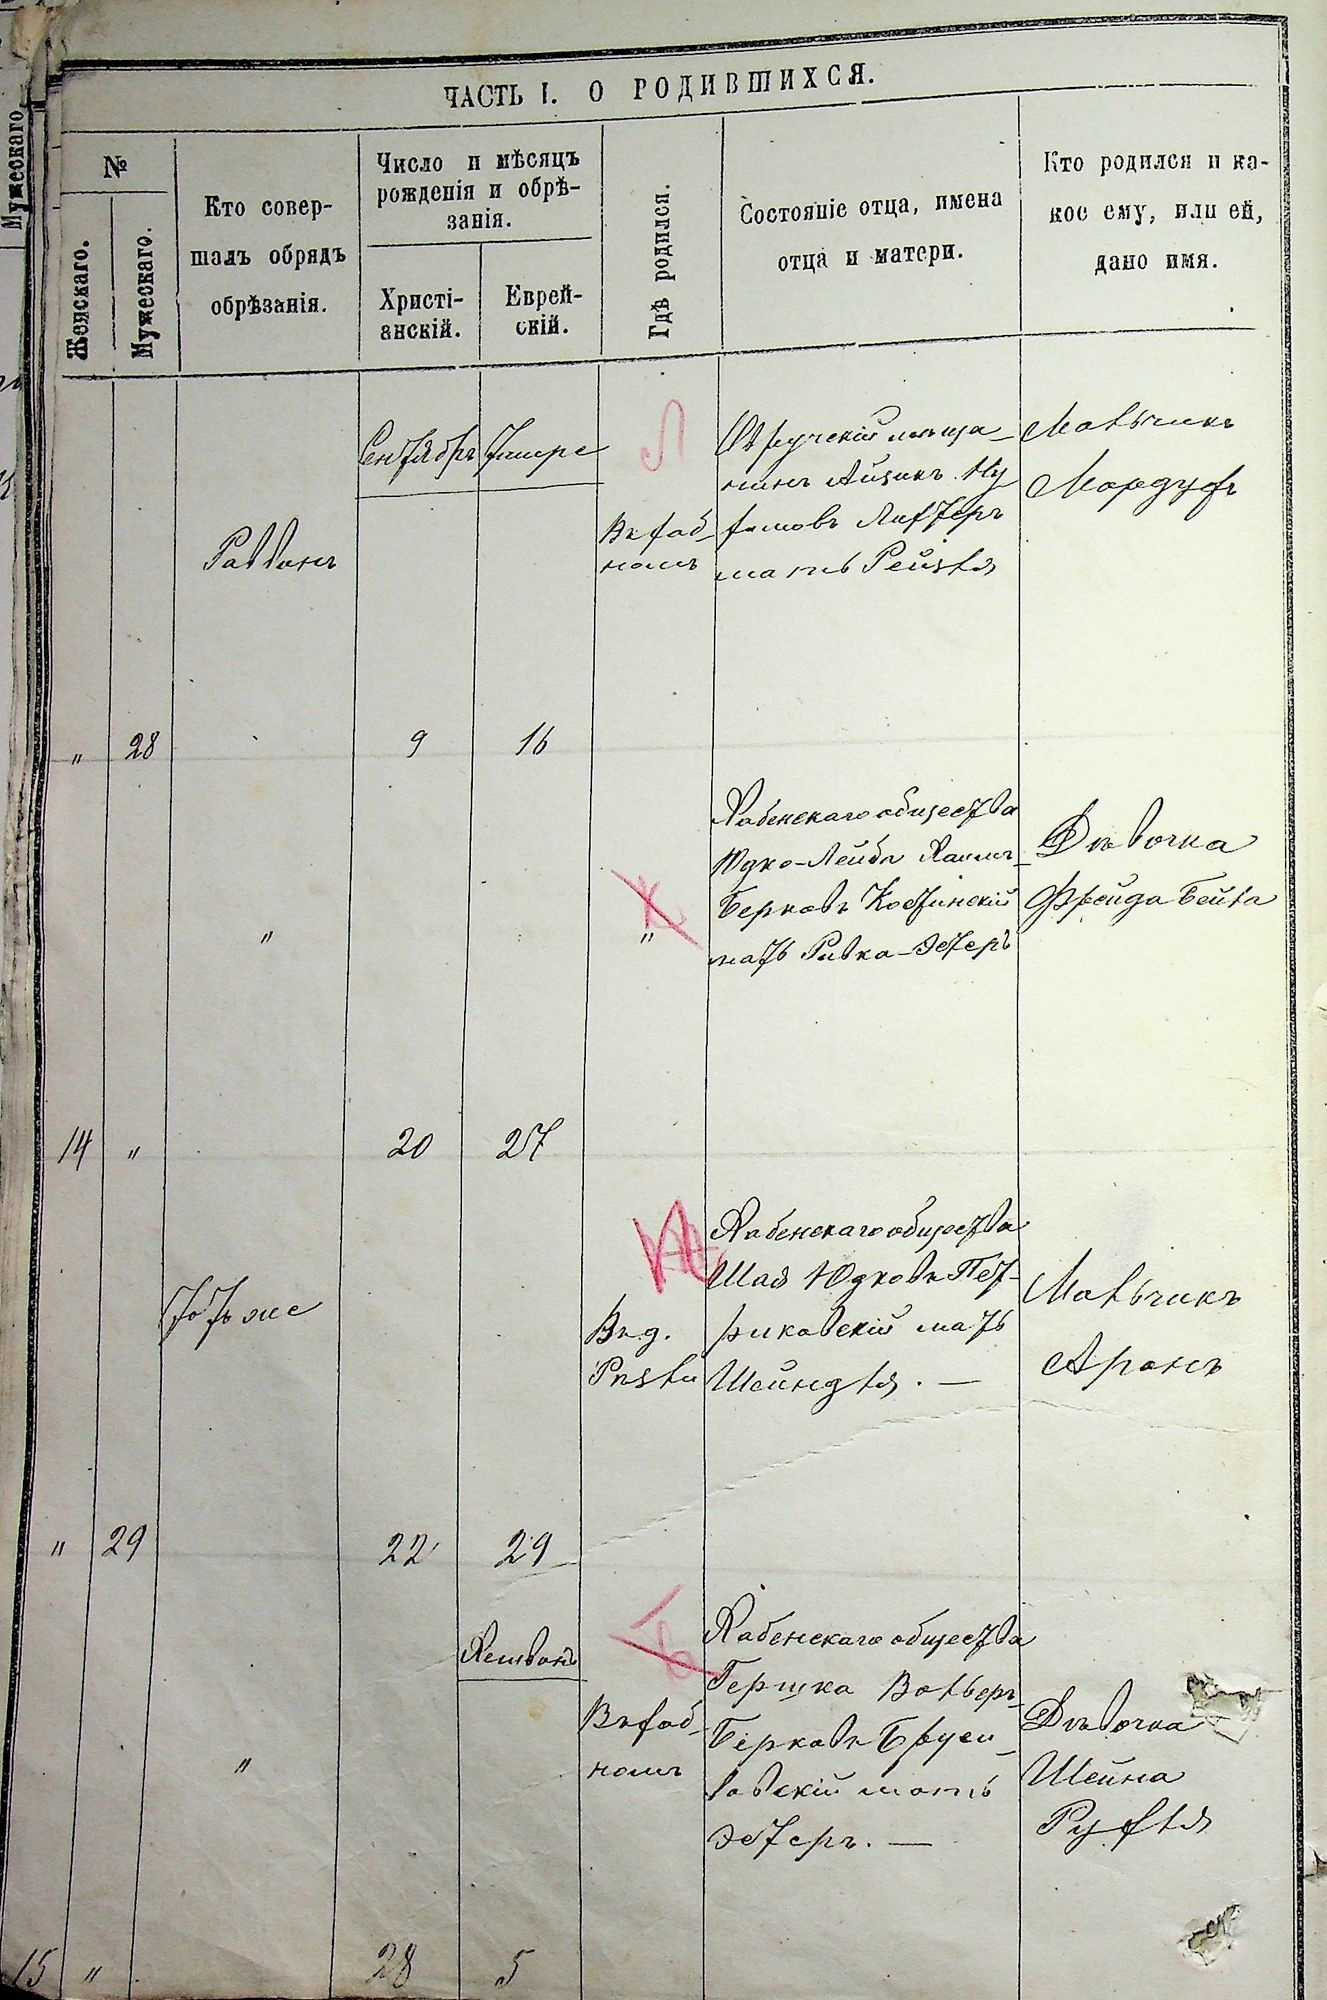 ЧАСТЬ I. О РОДИВШИХСЯ.
Мужескаго
№
Женскаго.
Мужескаго.
Кто совер-
шалъ обрядъ
обрѣзанія.
Число и мѣсяцъ
рожденія и обрѣ-
занія.
Христі-
анскій.
Еврей-
скій.
Гдѣ родился.
Состояніе отца, имена
отца и матери.
Кто родился и ка-
кое ему, или ей,
дано имя.
Сентябрь
Тишре
Раввинъ
Въ Хаб-
номъ
Овручскій мѣща-
нинъ Айзикъ
мать Рейзля
Мальчикъ
Мордухъ
" 28 9 16
"
"
Хабенскаго общества
Юдко-Лейба Хаимъ-
Берковъ Костинскій
мать Ривка-Эстеръ
Дѣвочка
Фрейда Бейла
14 " 20 27
Тотъ же
Въ д.
Хабенскаго общества
Шая Юдковъ Пет-
риковскій мать
Шейндля. —
Мальчикъ
Аронъ
" 29 22 29
Хешванъ
"
Въ Хаб-
номъ
Хабенскаго общества
Гершка Вольверъ-
Берковъ Бруси-
ловскій мать
Эстеръ. —
Дѣвочка
Шейна
Рухля
15 " 28 5